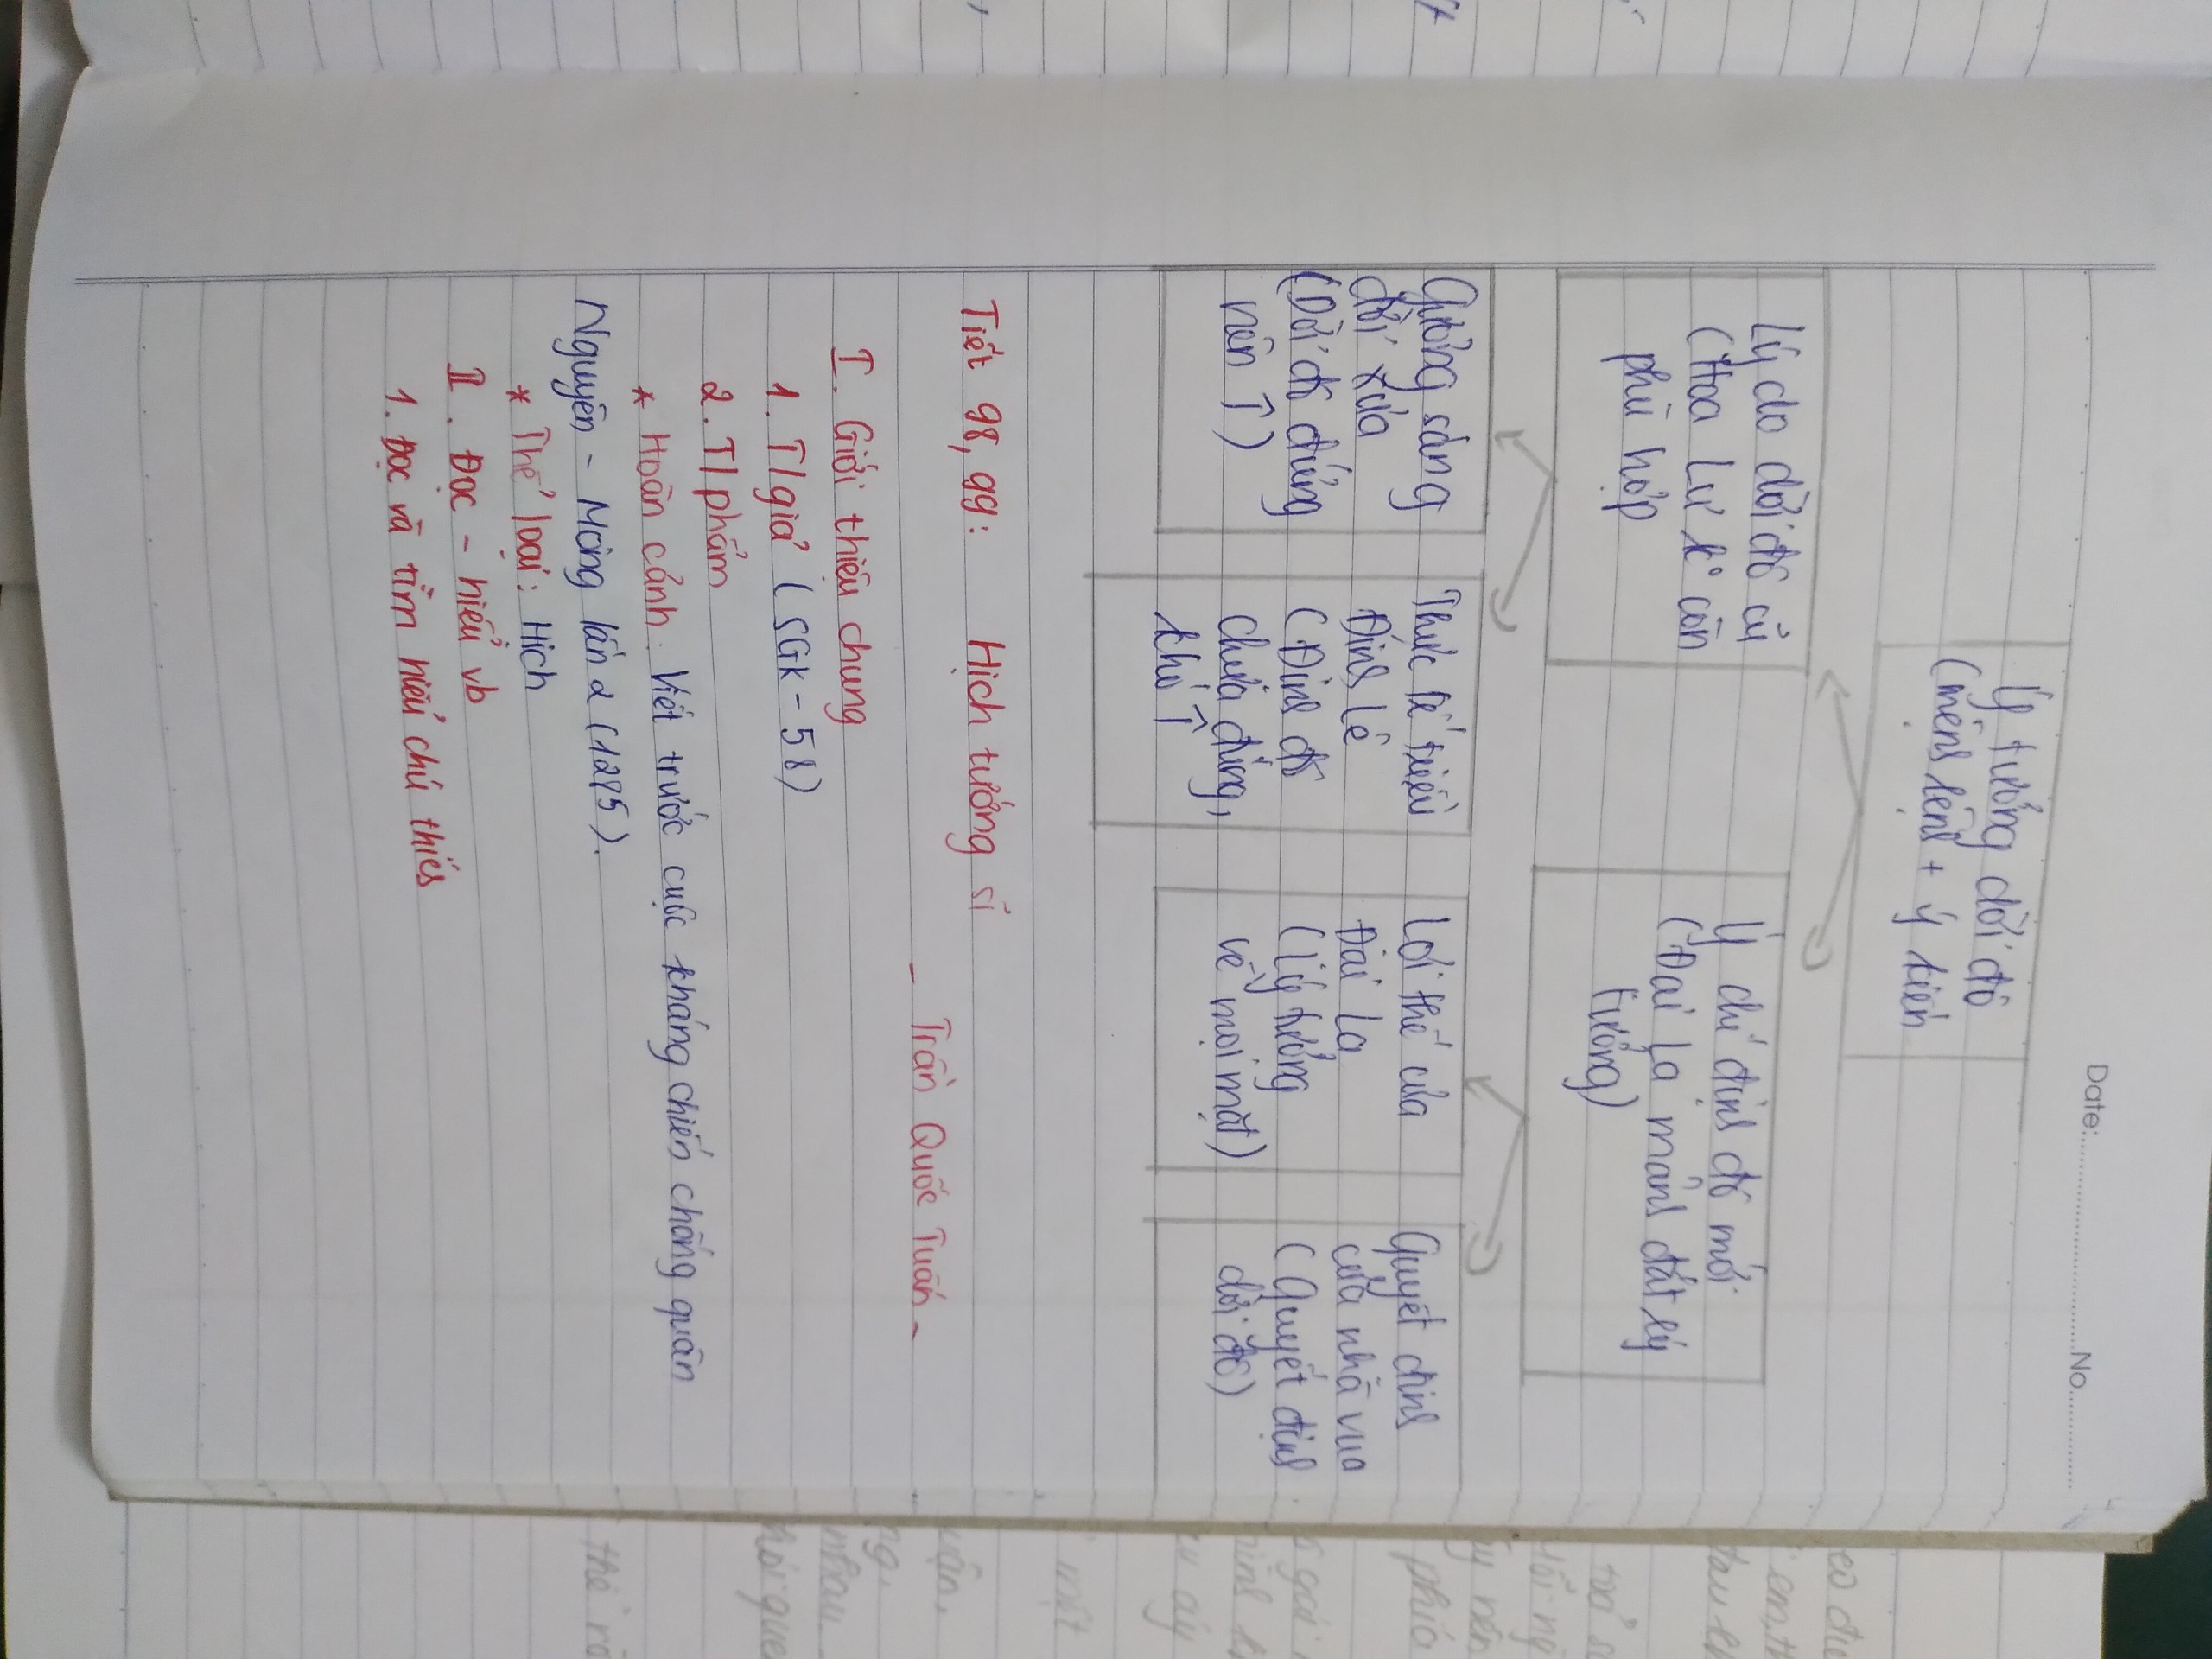 Date: No
Ý tưởng dời đô
(mệnh lệnh + ý kiến
Lý do dời đô cũ
(Hoa Lư k° còn
phù hợp
Ý chí định đô mới
(Đại La mảnh đất lý
tưởng)
Gương sáng
đời xưa
(Dời đô đúng
nên T)
Thực tế triều
Đinh Lê
(Định đô
chưa đúng,
khó T
Lợi thế của
Đại La
(Lý tưởng
về mọi mặt)
Quyết định
của nhà vua
(Quyết định
dời đô)
Tiết 98, 99: Hịch tướng sĩ
- Trần Quốc Tuấn -
I. Giới thiệu chung
1. T/giả (SGK - 58)
2. T/phẩm
* Hoàn cảnh: Viết trước cuộc kháng chiến chống quân
Nguyên - Mông lần 2 (1285).
* Thể loại: Hịch
II. Đọc - hiểu vb
1. Đọc và tìm hiểu chú thích